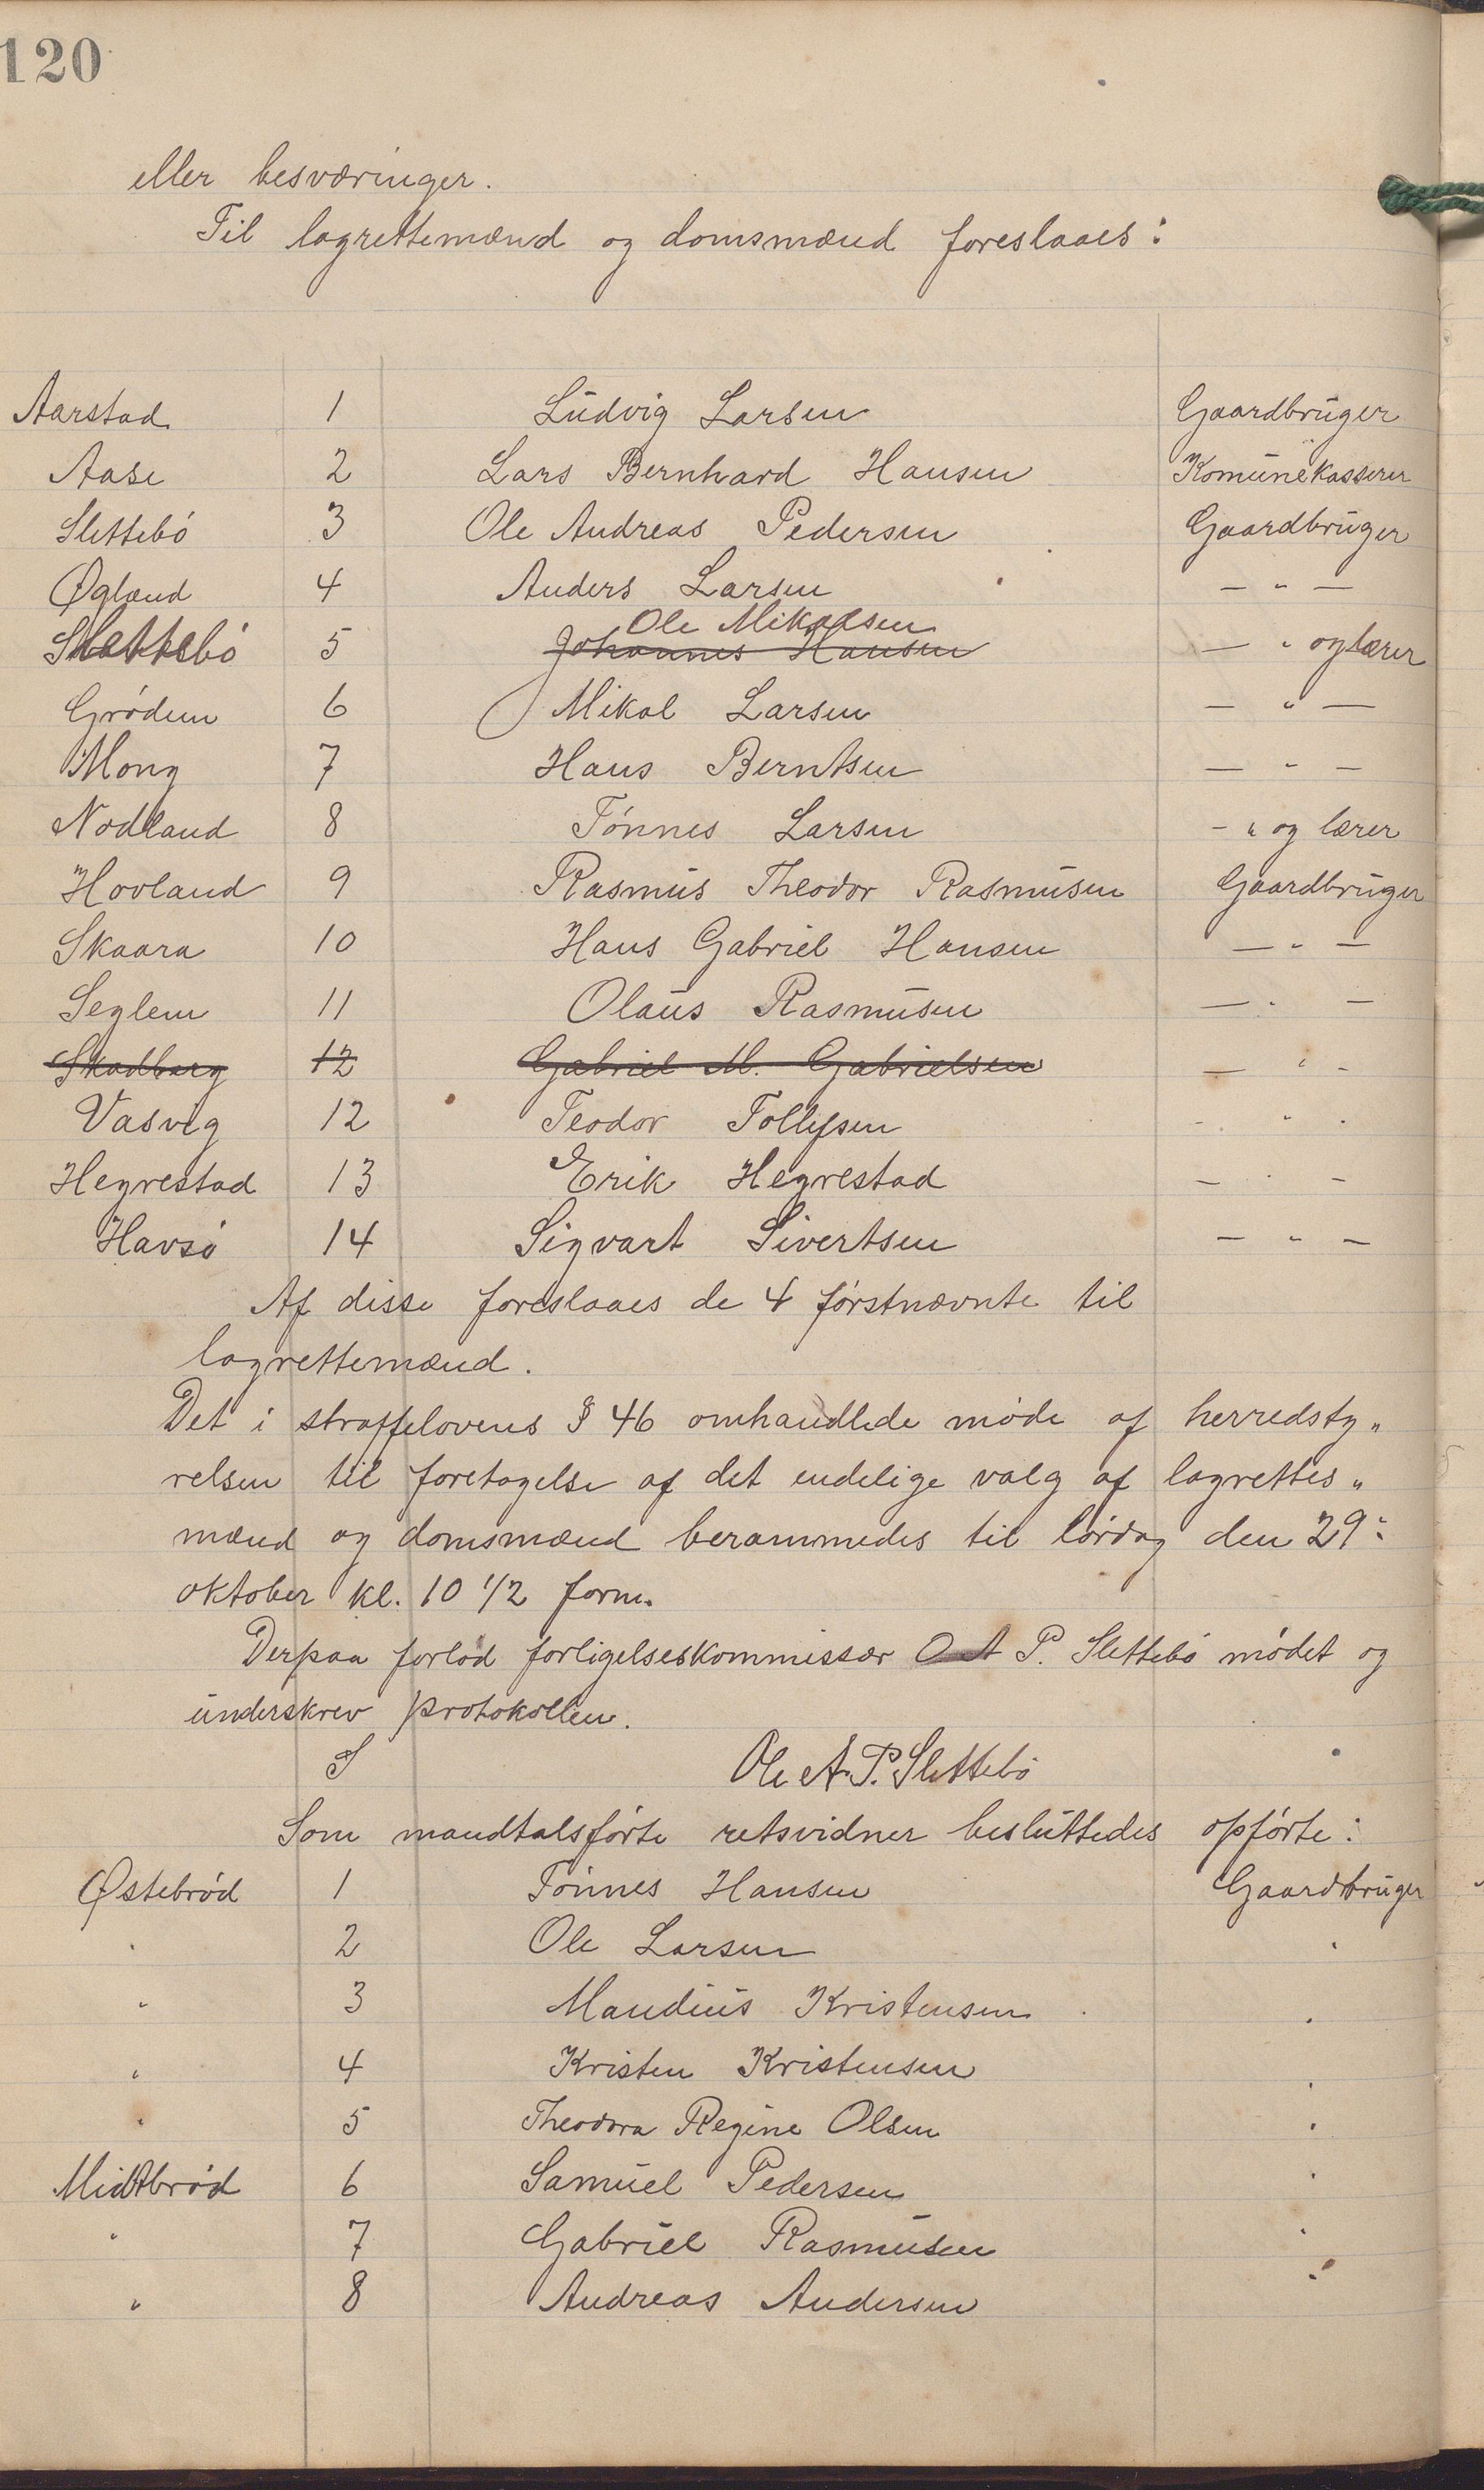 120
eller besværinger.
Til lagrettemænd og domsmænd foreslaaes:
Aarstad 1 Ludvig Larsen Gaardbruger
Aase 2 Lars Bernhard Hansen Komunekasserer
Slettebó 3 Ole Andreas Pedersen Gaardbruger
Øgland 4 Anders Larsen — " —
Ole Mikalsen
Slettebó 5 Johannes Hansen — " og lærer
Gródem 6 Mikal Larsen — " —
Mong 7 Hans Berntsen — " —
Nodland 8 Tónnes Larsen - " og lærer
Hovland 9 Rasmus Theodor Rasmusen Gaardbruger
Skaara 10 Hans Gabriel Hansen — " —
Seglem 11 Olaus Rasmusen — " —
Skadberg 12 Gabriel M. Gabrielsen — " -
Vasvig 12 Teodor Tollefsen - " -
Hegrestad 13 Erik Hegrestad — " -
Havsó 14 Sigvart Sivertsen — " —
Af disse foreslaaes de 4 fórstnævnte til
lagrettemænd.
Det i straffelovens § 46 omhandlede móde af herredsty„
relsen til foretagelse af det endelige valg af lagrettes„
mænd og domsmænd berammedes til lórdag den 29:
oktober kl. 10 1/2 form.
Derpaa forlod forligelseskommissær O A P. Slettebó módet og
underskrev protokollen.
Ole A. P. Slettebó
Som mandtalsfórte retsvidner besluttedes opfórte:
Østebród 1 Tónnes Hansen Gaardbruger
" 2 Ole Larsen "
" 3 Mandius Kristensen "
" 4 Kristen Kristensen "
" 5 Theodora Regine Olsen "
Midtbród 6 Samuel Pedersen "
" 7 Gabriel Rasmusen "
" 8 Andreas Andersen "